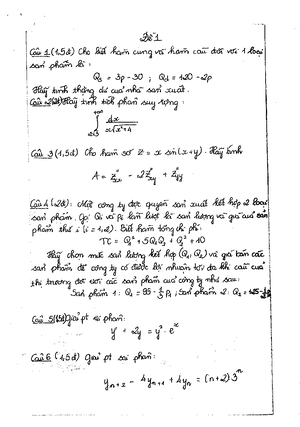 Đề 1
Câu 1 (1,5đ) Cho biết hàm cung và hàm cầu đối với 1 loại
sản phẩm là:
Qs = 3p - 30 ; Qd = 120 - 2p
Hãy tính thặng dư của nhà sản xuất.
Hãy tính tích phân suy rộng:
dx
x√x²+4
Câu 3 (1,5đ) Cho hàm số z = x sin(x+y). Hãy tính
A = z''xx - 2z''xy + z''yy
Câu 4 (2đ): Một công ty độc quyền sản xuất kết hợp 2 loại
sản phẩm. Gọi Qi và Pi lần lượt là sản lượng và giá của sản
phẩm thứ i (i = 1,2). Biết hàm tổng chi phí:
TC = Q₁² + 5Q₁Q₂ + Q₂² + 10
Hãy chọn mức sản lượng kết hợp (Q₁, Q₂) và giá bán các
sản phẩm để công ty có được lợi nhuận tối đa khi cầu của
thị trường đối với các sản phẩm của công ty như sau:
Sản phẩm 1: Q₁ = 95 - P₁ ; Sản phẩm 2: Q₂ =
Câu 5 Giải pt vi phân:
y' + 2y = y².eˣ
Câu 6 (1,5đ) Giải pt sai phân:
yₙ₊₂ - 4yₙ₊₁ + 4yₙ = (n+2)3ⁿ